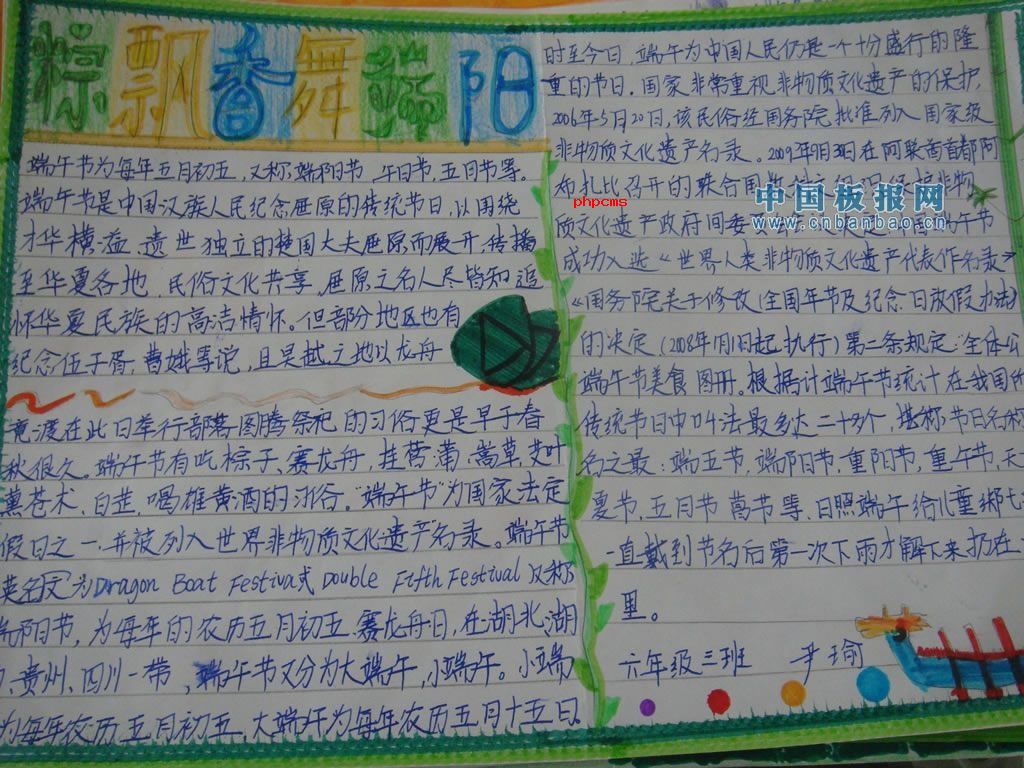 粽飘香舞端阳
端午节为每年五月初五，又称端阳节、午日节、五月节等。
端午节是中国汉族人民纪念屈原的传统节日，以围绕
才华横溢、遗世独立的楚国大夫屈原而展开，传播
至华夏各地，民俗文化共享，屈原之名人尽皆知，追
怀华夏民族的高洁情怀。但部分地区也有
纪念伍子胥、曹娥等说，且吴越之地以龙舟
竞渡在此日举行部落图腾祭祀的习俗更是早于春
秋很久。端午节有吃粽子、赛龙舟，挂菖蒲、蒿草、艾叶
薰苍术、白芷，喝雄黄酒的习俗。"端午节"为国家法定
假日之一，并被列入世界非物质文化遗产名录。端午节
英名文为Dragon Boat Festival或Double Fifth Festival又称
端阳节，为每年的农历五月初五赛龙舟日，在湖北、湖
、贵州、四川一带，端午节又分为大端午，小端午。小端
为每年农历五月初五，大端午为每年农历五月十五日。
时至今日，端午为中国人民仍是一个十份盛行的隆
重的节日。国家非常重视非物质文化遗产的保护，
2006年5月20日，该民俗经国务院批准列入国家级
非物质文化遗产名录。2009年9月30日在阿联酋首都阿
布扎比召开的联合国教 非物
质文化遗产政府间委 午节
成功入选《世界人类非物质文化遗产代表作名录》
《国务院关于修改《全国年节及纪念日放假办法》
的决定（2008年1月1日起执行）第二条规定"全体公
端午节美食图册。根据计端午节统计在我国所
传统节日中叫法最多达二十多个，堪称节日名称
名之最：端五节，端阳节，重阳节，重午节，天
夏节，五月节 节等、日照端午给儿童绑七
一直戴到节名后第一次下雨才解下来扔在
里。
六年级三班 尹瑜
phpcms
中国板报网
www.cnbanbao.cn